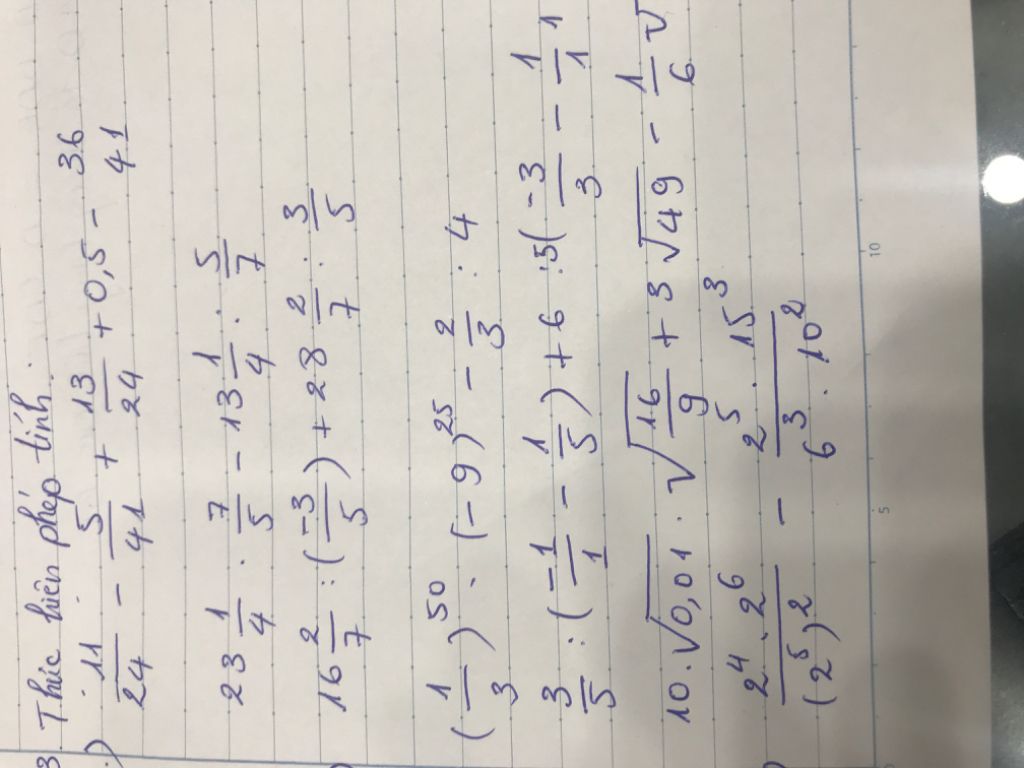 3. Thực hiện phép tính:
.) 11/24 - 5/41 + 13/24 + 0,5 - 36/41
23 1/4 . 7/5 - 13 1/4 . 5/7
16 2/7 : (-3/5) + 28 2/7 . 3/5
(1/3)^50 . (-9)^25 - 2/3 : 4
3/5 : (-1/1 - 1/5) + 6 :5(-3/3 - 1/1
10.√0,01 . √16/9 + 3√49 - 1/6 √
2^4 . 2^6/(2^5)^2 - 2^5 . 15^3/6^3 . 10^2